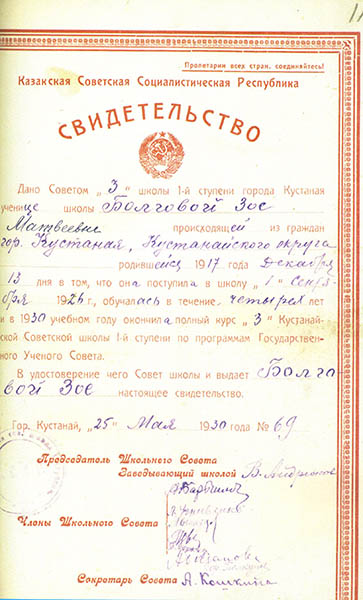 Пролетарии всех стран, соединяйтесь!
Казакская Советская Социалистическая Республика
СВИДЕТЕЛЬСТВО
Дано Советом „3" школы 1-й ступени города Кустаная
ученице школы Болговой Зое
Матвеевне происходящей из граждан
гор. Кустаная, Кустанайского округа
родившейся 1917 года Декабря
13 дня в том, что она поступила в школу „1" Сентя-
бря 1926 г., обучалась в течение четырех лет
и в 1930 учебном году окончила полный курс „3" Кустанай-
ской Советской школы 1-й ступени по программам Государствен-
ного Ученого Совета.
В удостоверение чего Совет школы и выдает Болго
вой Зое настоящее свидетельство.
Гор. Кустанай, „25" Мая 1930 года № 69
Председатель Школьного Совета
Заведывающий школой
Члены Школьного Совета
Секретарь Совета А. Кошкина